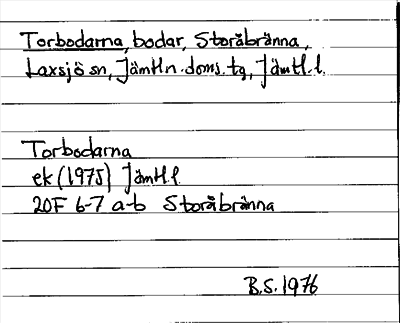 Torbodarna, bodar, Storåbränna,
Laxsjö sn, Jämtl.n.doms.tg, Jämtl.l.
Torbodarna
ek (1975) Jämtl.l
20F 6-7 a-b Storåbränna
B.S. 1976